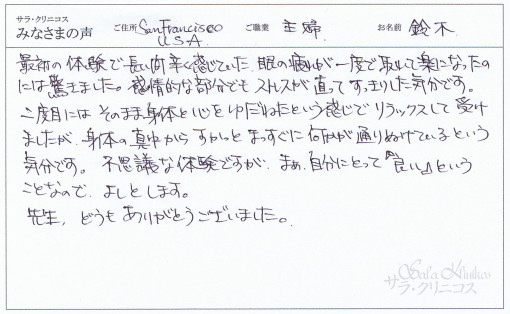 サラ・クリニコス
みなさまの声 ご住所 San Francisco U.S.A. ご職業 主婦 お名前 鈴木
最初の体験で長い間辛く感じていた、眼の疲れが一度で取れて楽になったの
には驚きました。感情的な部分でもストレスが直ってすっきりした気分です。
二度目にはそのまま身体と心をゆだねたという感じでリラックスして受け
ましたが、身体の真中からすかっとまっすぐに何かが通りぬけているという
気分です。不思議な体験ですが、まぁ、自分にとって『良い』という
ことなので、よしとします。
先生、どうもありがとうございました。
Sala Klinikos
サラ・クリニコス